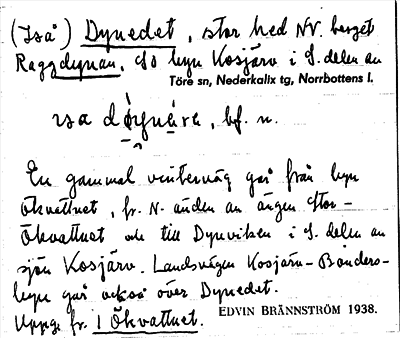 (Iså) Dynedet, stor hed NV. berget
Raggdynan, SO byn Kosjärv i S. delen av
Töre sn, Nederkalix tg, Norrbottens l.
bf. n.
En gammal vinterväg går från byn
Ökvattnet, fr. N. änden av ängen Stor-
Ökvattnet och till Dynviken i S. delen av
sjön Kosjärv. Landsvägen Kosjärv-Bönders-
byn går också över Dynedet.
Uppg. fr. 1 Ökvattnet.
EDVIN BRÄNNSTRÖM 1938.